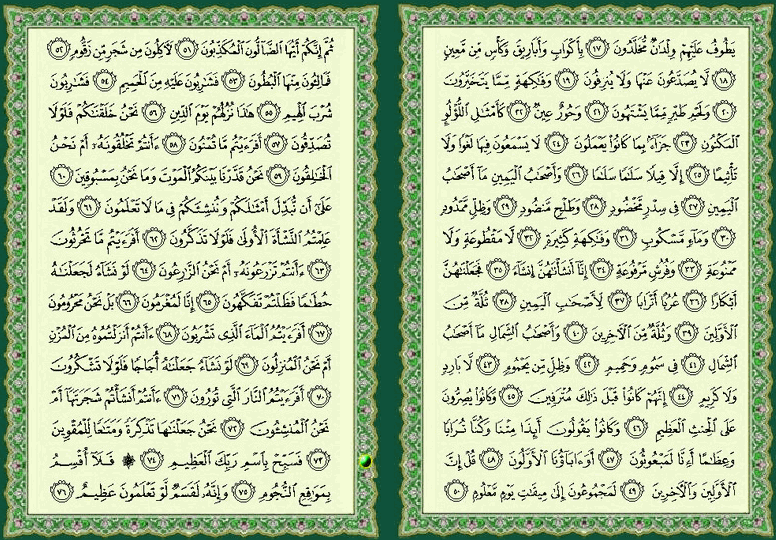 يَطُوفُ عَلَيْهِمْ وِلْدَٰنٌ مُّخَلَّدُونَ ١٧ بِأَكْوَابٍ وَأَبَارِيقَ وَكَأْسٍ مِّن مَّعِينٍ
١٨ لَّا يُصَدَّعُونَ عَنْهَا وَلَا يُنزِفُونَ ١٩ وَفَٰكِهَةٍ مِّمَّا يَتَخَيَّرُونَ
٢٠ وَلَحْمِ طَيْرٍ مِّمَّا يَشْتَهُونَ ٢١ وَحُورٌ عِينٌ ٢٢ كَأَمْثَٰلِ اللُّؤْلُؤِ
الْمَكْنُونِ ٢٣ جَزَآءًۢ بِمَا كَانُوا۟ يَعْمَلُونَ ٢٤ لَا يَسْمَعُونَ فِيهَا لَغْوًا وَلَا
تَأْثِيمًا ٢٥ إِلَّا قِيلًا سَلَٰمًا سَلَٰمًا ٢٦ وَأَصْحَٰبُ الْيَمِينِ مَآ أَصْحَٰبُ
الْيَمِينِ ٢٧ فِى سِدْرٍ مَّخْضُودٍ ٢٨ وَطَلْحٍ مَّنضُودٍ ٢٩ وَظِلٍّ مَّمْدُودٍ
٣٠ وَمَآءٍ مَّسْكُوبٍ ٣١ وَفَٰكِهَةٍ كَثِيرَةٍ ٣٢ لَّا مَقْطُوعَةٍ وَلَا
مَمْنُوعَةٍ ٣٣ وَفُرُشٍ مَّرْفُوعَةٍ ٣٤ إِنَّآ أَنشَأْنَٰهُنَّ إِنشَآءً ٣٥ فَجَعَلْنَٰهُنَّ
أَبْكَارًا ٣٦ عُرُبًا أَتْرَابًا ٣٧ لِّأَصْحَٰبِ الْيَمِينِ ٣٨ ثُلَّةٌ مِّنَ
الْأَوَّلِينَ ٣٩ وَثُلَّةٌ مِّنَ الْـَٔاخِرِينَ ٤٠ وَأَصْحَٰبُ الشِّمَالِ مَآ أَصْحَٰبُ
الشِّمَالِ ٤١ فِى سَمُومٍ وَحَمِيمٍ ٤٢ وَظِلٍّ مِّن يَحْمُومٍ ٤٣ لَّا بَارِدٍ
وَلَا كَرِيمٍ ٤٤ إِنَّهُمْ كَانُوا۟ قَبْلَ ذَٰلِكَ مُتْرَفِينَ ٤٥ وَكَانُوا۟ يُصِرُّونَ
عَلَى الْحِنثِ الْعَظِيمِ ٤٦ وَكَانُوا۟ يَقُولُونَ أَئِذَا مِتْنَا وَكُنَّا تُرَابًا
وَعِظَٰمًا أَءِنَّا لَمَبْعُوثُونَ ٤٧ أَوَءَابَآؤُنَا الْأَوَّلُونَ ٤٨ قُلْ إِنَّ
الْأَوَّلِينَ وَالْـَٔاخِرِينَ ٤٩ لَمَجْمُوعُونَ إِلَىٰ مِيقَٰتِ يَوْمٍ مَّعْلُومٍ ٥٠
ثُمَّ إِنَّكُمْ أَيُّهَا الضَّآلُّونَ الْمُكَذِّبُونَ ٥١ لَـَٔاكِلُونَ مِن شَجَرٍ مِّن زَقُّومٍ ٥٢
فَمَالِـُٔونَ مِنْهَا الْبُطُونَ ٥٣ فَشَٰرِبُونَ عَلَيْهِ مِنَ الْحَمِيمِ ٥٤ فَشَٰرِبُونَ
شُرْبَ الْهِيمِ ٥٥ هَٰذَا نُزُلُهُمْ يَوْمَ الدِّينِ ٥٦ نَحْنُ خَلَقْنَٰكُمْ فَلَوْلَا
تُصَدِّقُونَ ٥٧ أَفَرَءَيْتُم مَّا تُمْنُونَ ٥٨ ءَأَنتُمْ تَخْلُقُونَهُۥٓ أَمْ نَحْنُ
الْخَٰلِقُونَ ٥٩ نَحْنُ قَدَّرْنَا بَيْنَكُمُ الْمَوْتَ وَمَا نَحْنُ بِمَسْبُوقِينَ ٦٠
عَلَىٰٓ أَن نُّبَدِّلَ أَمْثَٰلَكُمْ وَنُنشِئَكُمْ فِى مَا لَا تَعْلَمُونَ ٦١ وَلَقَدْ
عَلِمْتُمُ النَّشْأَةَ الْأُولَىٰ فَلَوْلَا تَذَكَّرُونَ ٦٢ أَفَرَءَيْتُم مَّا تَحْرُثُونَ
٦٣ ءَأَنتُمْ تَزْرَعُونَهُۥٓ أَمْ نَحْنُ الزَّٰرِعُونَ ٦٤ لَوْ نَشَآءُ لَجَعَلْنَٰهُ
حُطَٰمًا فَظَلْتُمْ تَفَكَّهُونَ ٦٥ إِنَّا لَمُغْرَمُونَ ٦٦ بَلْ نَحْنُ مَحْرُومُونَ
٦٧ أَفَرَءَيْتُمُ الْمَآءَ الَّذِى تَشْرَبُونَ ٦٨ ءَأَنتُمْ أَنزَلْتُمُوهُ مِنَ الْمُزْنِ
أَمْ نَحْنُ الْمُنزِلُونَ ٦٩ لَوْ نَشَآءُ جَعَلْنَٰهُ أُجَاجًا فَلَوْلَا تَشْكُرُونَ
٧٠ أَفَرَءَيْتُمُ النَّارَ الَّتِى تُورُونَ ٧١ ءَأَنتُمْ أَنشَأْتُمْ شَجَرَتَهَآ أَمْ
نَحْنُ الْمُنشِـُٔونَ ٧٢ نَحْنُ جَعَلْنَٰهَا تَذْكِرَةً وَمَتَٰعًا لِّلْمُقْوِينَ
٧٣ فَسَبِّحْ بِاسْمِ رَبِّكَ الْعَظِيمِ ٧٤ ۞ فَلَآ أُقْسِمُ
بِمَوَٰقِعِ النُّجُومِ ٧٥ وَإِنَّهُۥ لَقَسَمٌ لَّوْ تَعْلَمُونَ عَظِيمٌ ٧٦